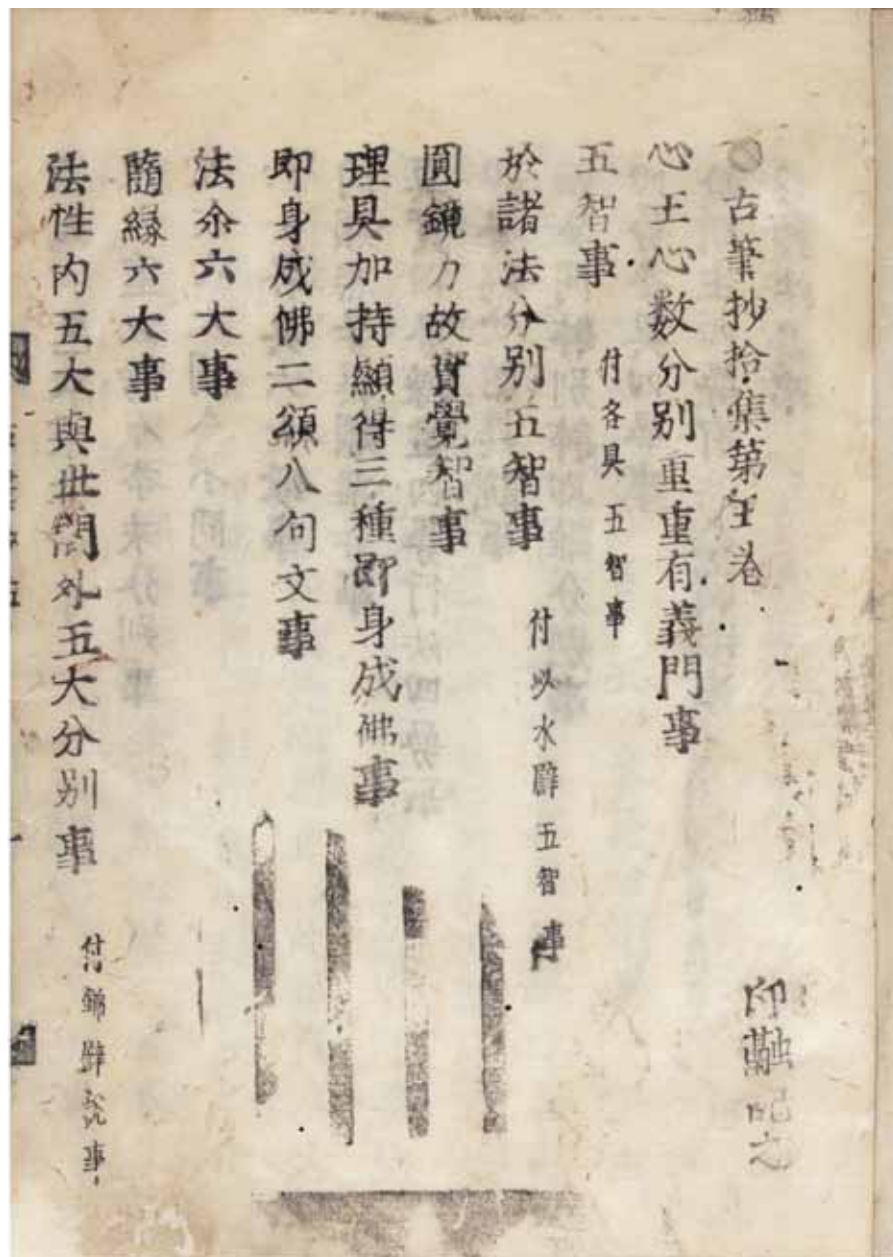 古筆抄拾集第五卷 印融記之
心王心数分别重重有義門事
五智事 付各具五智事
於諸法分别五智事 付以水辟五智事
圓鏡力故實覺智事
理具加持顯得三種即身成佛事
即身成佛二頌八句文事
法尒六大事
隨緣六大事
法性内五大與世間外五大分别事 付錦辟説事